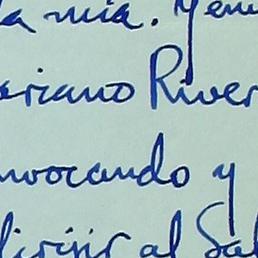 la mia. Y en
ariano River
nvocando y
dirijir al Sal